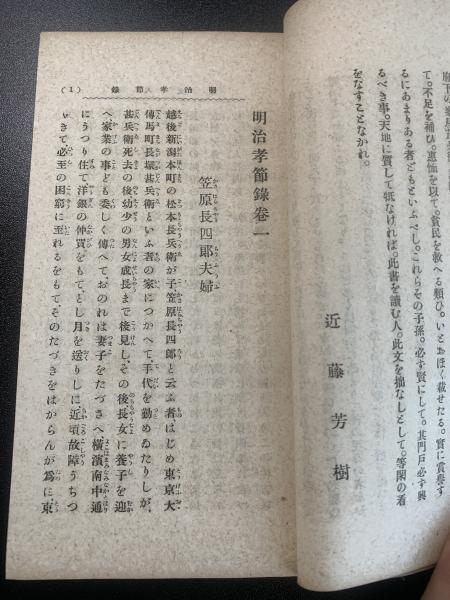 て。不足を補ひ。恵恤を以て。貧民を救へる類ひ。いとおほく載せたる。實に賞譽す
るにあまりある者どもといふべし。これらその子孫。必ず賢にして。其門戸必ず興
るべき事。天地に質して牴なければ。此書を讀む人。此文を拙なしとして。等閑の看
をなすことなかれ。
近藤芳樹
明治孝節錄 (1)
明治孝節錄卷一
笠原長四郎夫婦
越後新潟本町の松本長兵衛が子笠原長四郎と云ふ者はじめ東京大
傳馬町長塚甚兵衛といふ者の家につかへて、手代を勤めゐたりしが、
甚兵衛死去の後幼少の男女成長まで後見し、その後長女に養子を迎
へ家業の事ども委しく傳へて、おのれは妻子をたづさへ橫濱南中通
にうつり住て洋銀の仲買をもてとし月を送りしに近頃故障うちつ
いきて必至の困窮に至れるをもて、そのたづきをはからんが爲に東